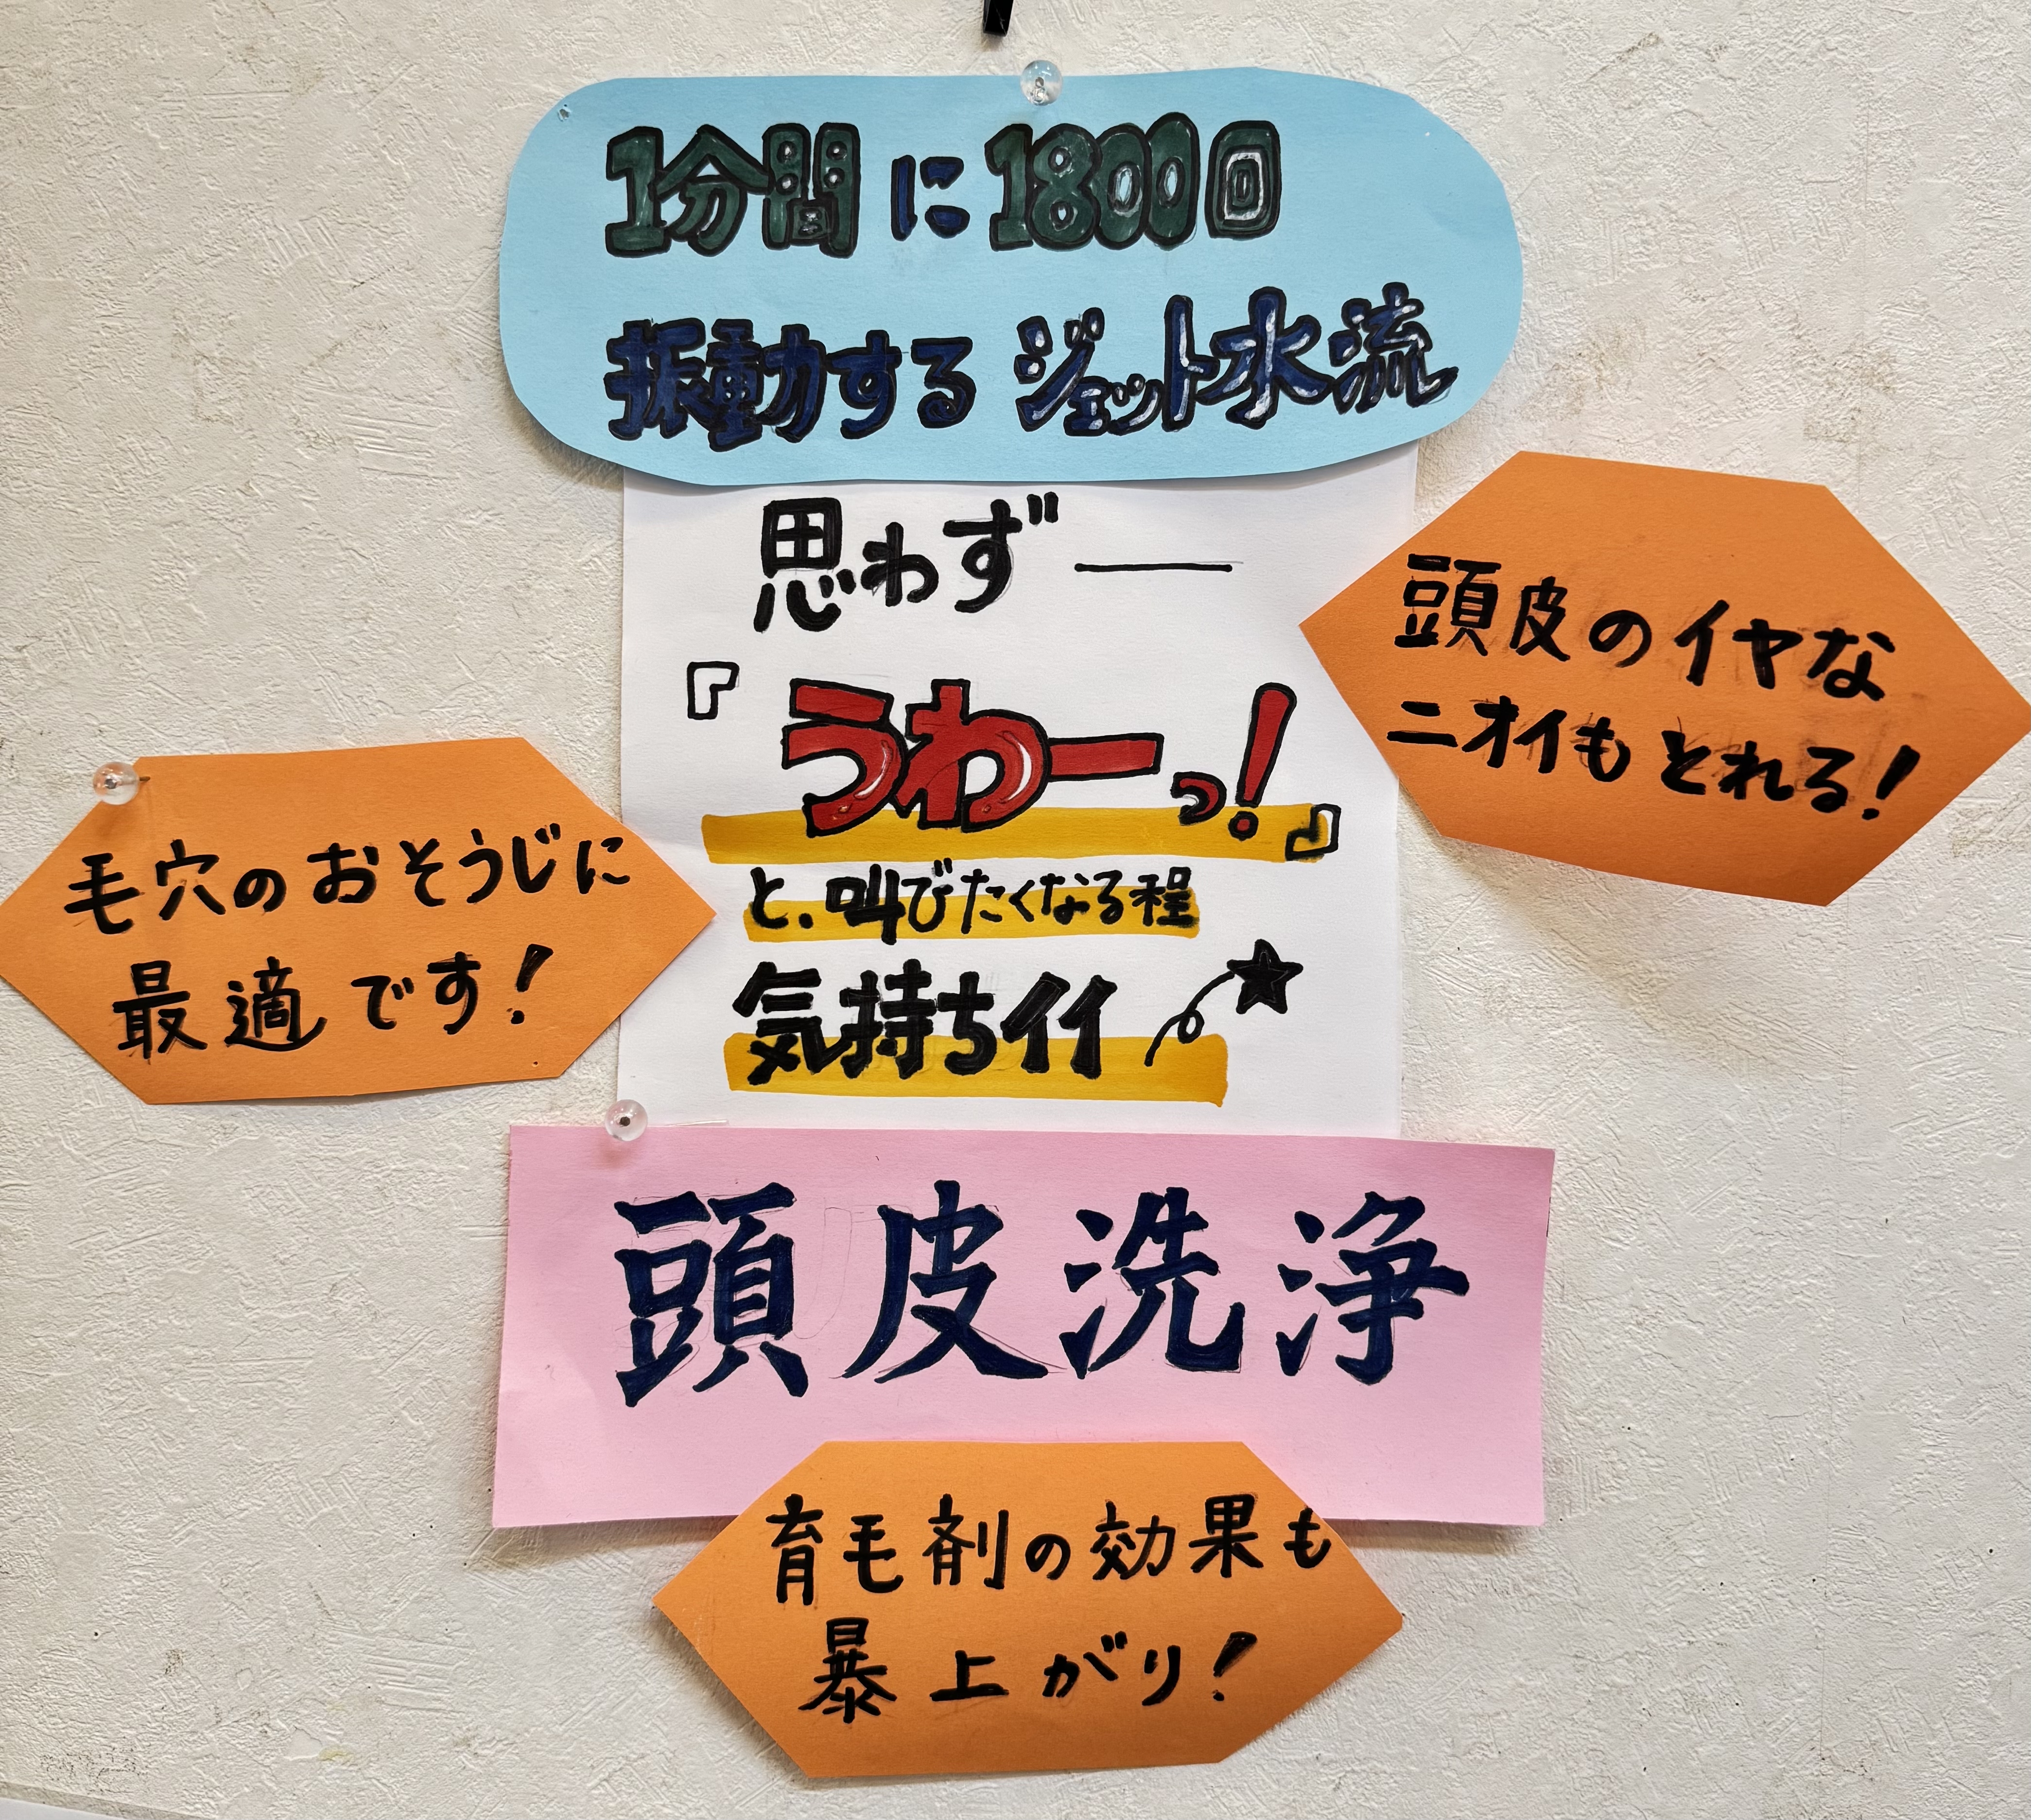 1分間に1800回
振動するジェット水流
思わず──
『うわーっ!』
と、叫びたくなる程
気持ちイイ
頭皮のイヤな
ニオイもとれる!
毛穴のおそうじに
最適です!
頭皮洗浄
育毛剤の効果も
暴上がり!